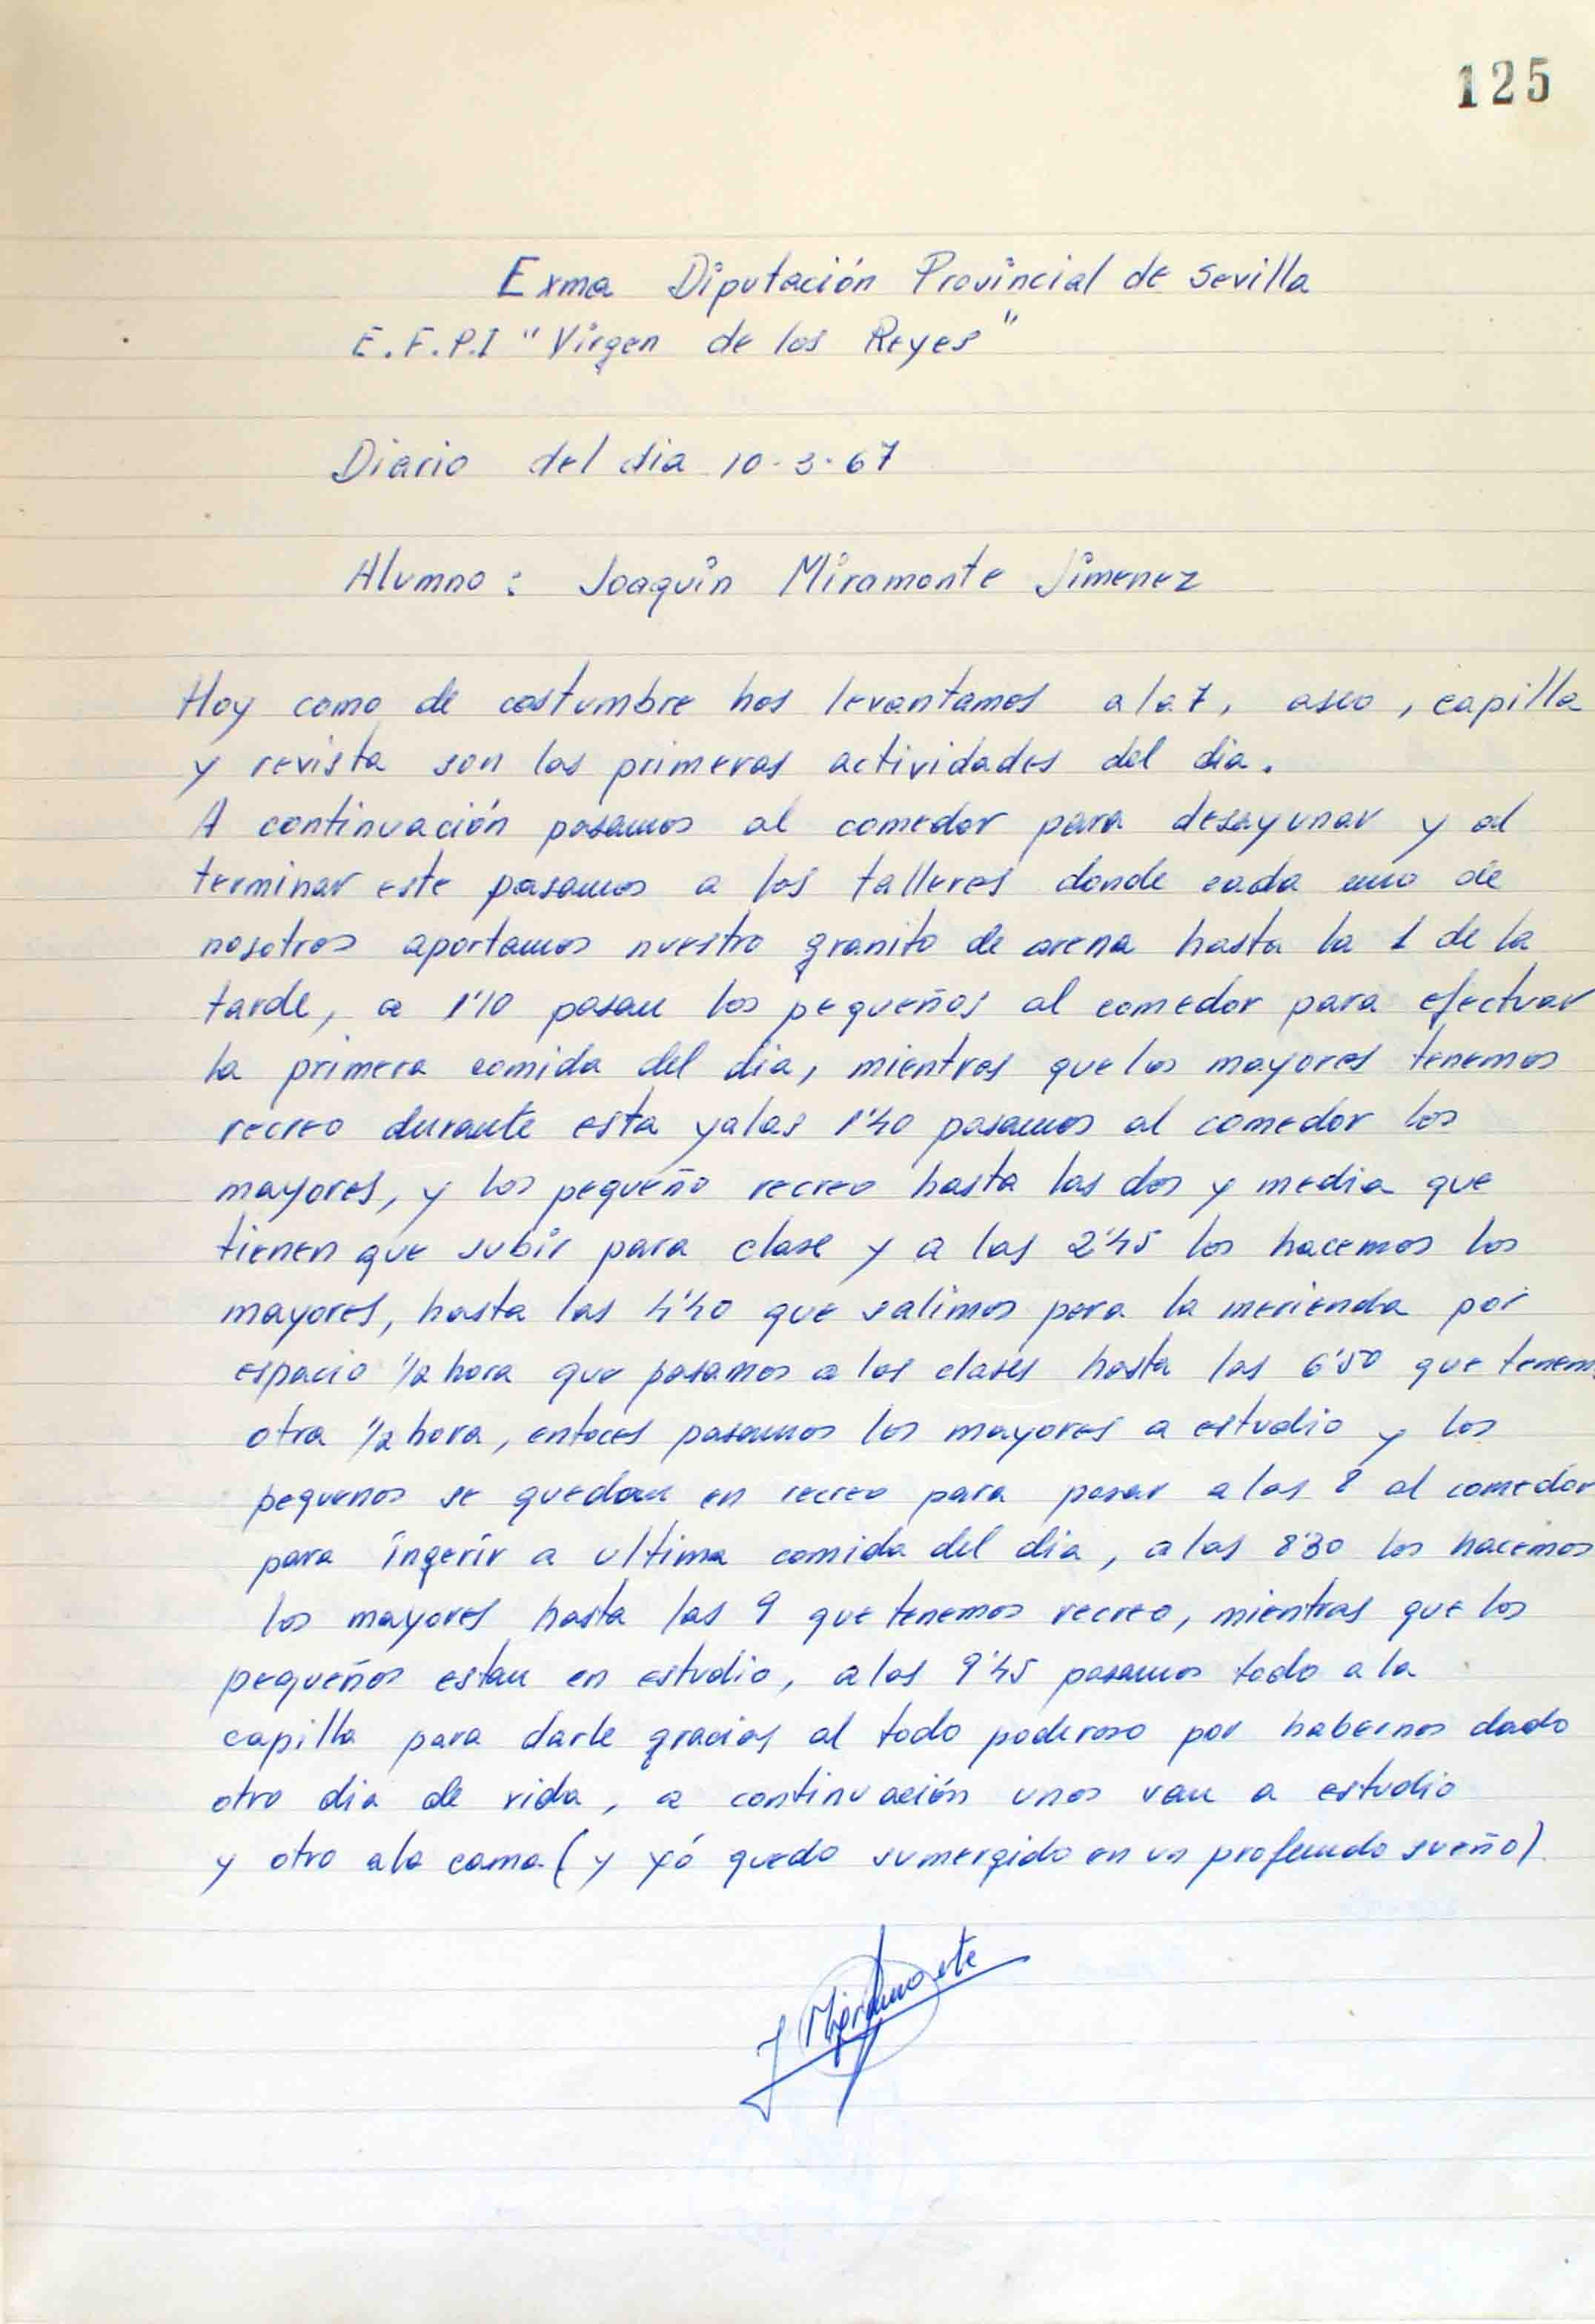 125
Exma Diputación Provincial de Sevilla
E.F.P.I "Virgen de los Reyes"
Diario del dia 10-3-67
Alumno: Joaquin Miramonte Jimenez
Hoy como de costumbre nos levantamos a la 7, aseo, capilla
y revista son las primeras actividades del dia.
A continuación pasamos al comedor para desayunar y al
terminar este pasamos a los talleres donde cada uno de
nosotros aportamos nuestro granito de arena hasta la 1 de la
tarde, a 1'10 pasan los pequeños al comedor para efectuar
la primera comida del dia, mientras que los mayores tenemos
recreo durante esta y a las 1'40 pasamos al comedor los
mayores, y los pequeño recreo hasta las dos y media que
tienen que subir para clase y a las 2'45 los hacemos los
mayores, hasta las 4'40 que salimos para la merienda por
espacio 1/2 hora que pasamos a las clases hasta las 6'50 que tenem
otra 1/2 hora, entoces pasamos los mayores a estudio y los
pequenos se quedan en recreo para pasar a las 8 al comedor
para ingerir a ultima comida del dia, a las 8'30 los hacemos
los mayores hasta las 9 que tenemos recreo, mientras que los
pequeños estan en estudio, a las 9'45 pasamos todo a la
capilla para darle gracias al todo poderoso por habernos dado
otro dia de vida, a continuación unos van a estudio
y otro a la cama (y yó quedo sumergido en un profundo sueño)
J Miramonte